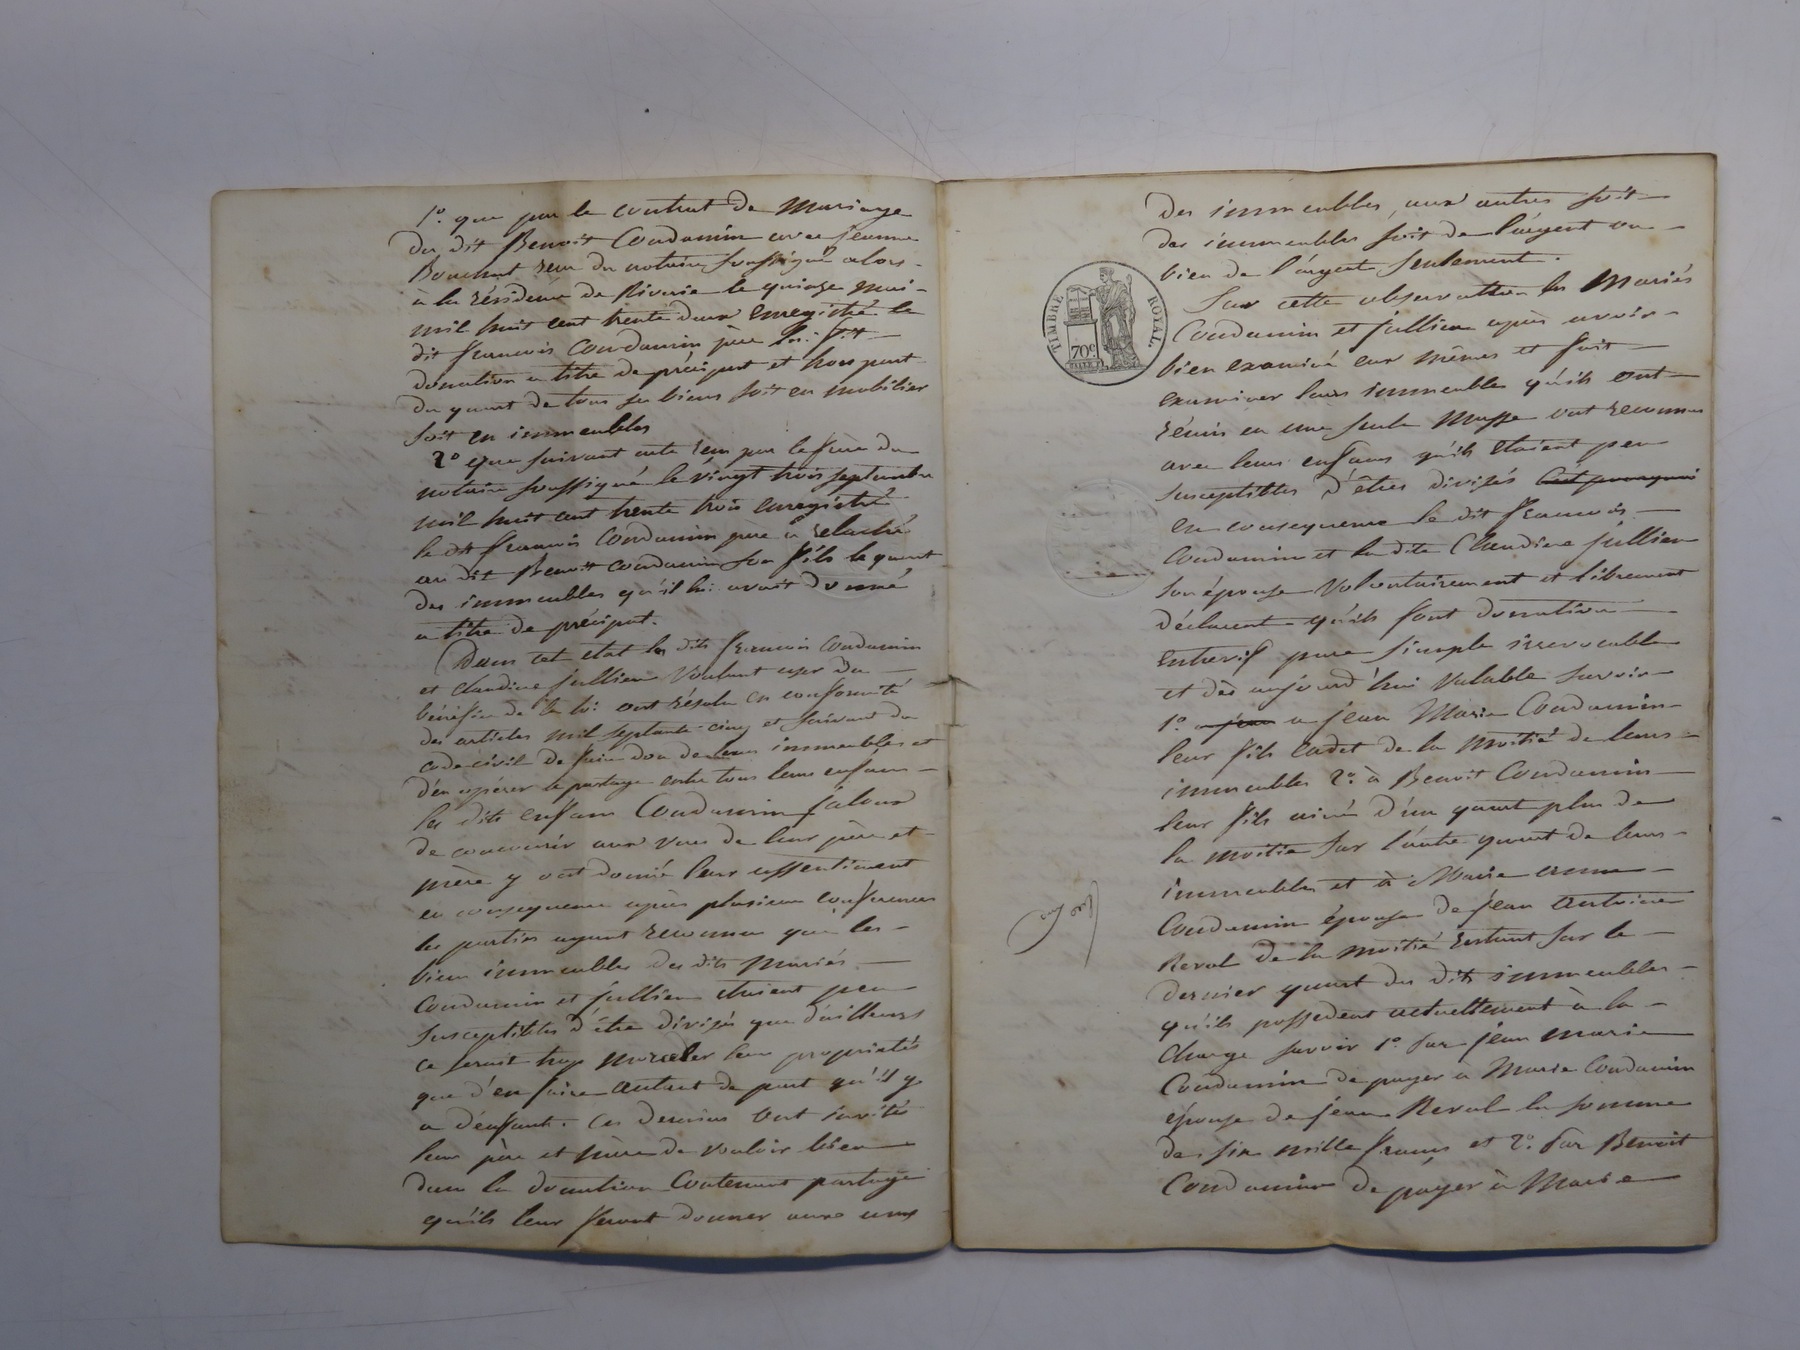 1.° que par le contrat de Mariage
du dit Benoit Condamin avec jeanne
Bouchut reçu du notaire soussigné alors
à la résidence de Riverie le quinze mai
mil huit cent trente deux enregistré le
dit francois Condamin père lui fit
donation a titre de préciput et hors part
du quart de tous ses biens soit en mobilier
soit en immeubles
2° Que suivant acte reçu par le frère du
notaire soussigné le vingt trois septembre
mil huit cent trente trois enregistré
le dit francois Condamin père a relaché
au dit Benoit Condamin son fils le quart
des immeubles qu'il lui avait donné
a titre de préciput.
Dans cet etat les dits francois Condamin
et Claudine jullien voulant user du
bénéfice de la loi ont résolu en conformité
des articles mil septante cinq et suivant du
code civil de faire don de leurs immeubles et
d'en opérer le partage entre tous leurs enfans
les dits enfans Condamin jaloux
de concourir aux vues de leur père et
mère y ont donné leur assentiment
en consequence après plusieurs conferences
les parties ayant reconnu que les
biens immeubles des dits mariés
Condamin et jullien étaient peu
susceptibles d'être divisés que d'ailleurs
ce serait trop morceler leur propriétés
que d'en faire autant de part qu'il y
a d'enfant. Ces derniers ont invités
leur père et mère de vouloir bien
dans la donation contenant partage
qu'ils leur feront donner aux uns
des immeubles, aux autres soit
des immeubles soit de l'argent ou
bien de l'argent seulement.
Sur cette observation les Mariés
Condamin et jullien après avoir
bien examiné eux mêmes et fait
examiner leurs immeubles qu'ils ont
réunis en une seule masse ont reconnu
avec leurs enfans qu'ils etaient peu
susceptibles d'êtres divisés C'est pourquoi
en consequence le dit francois
Condamin et la dite Claudine jullien
son épouse volontairement et librement
déclarent qu'ils font donation
entrevifs pure simple irrevocable
et dès aujourd'hui valable savoir
1.° a jean a jean Marie Condamin
leur fils cadet de la moitié de leurs
immeubles 2.° à Benoit Condamin
leur fils ainé d'un quart plus de
la moitié sur l'autre quart de leurs
immeubles et à Marie anne
Condamin épouse de jean Antoine
Reval de la moitié restant sur le
dernier quart des dits immeubles
qu'ils possedent actuellement à la
charge savoir 1.° par jean marie
Condamin de payer a Marie Condamin
épouse de jean Reval la somme
de six mille francs et 2.° par Benoit
Condamin de payer à Marie
TIMBRE ROYAL.
70c